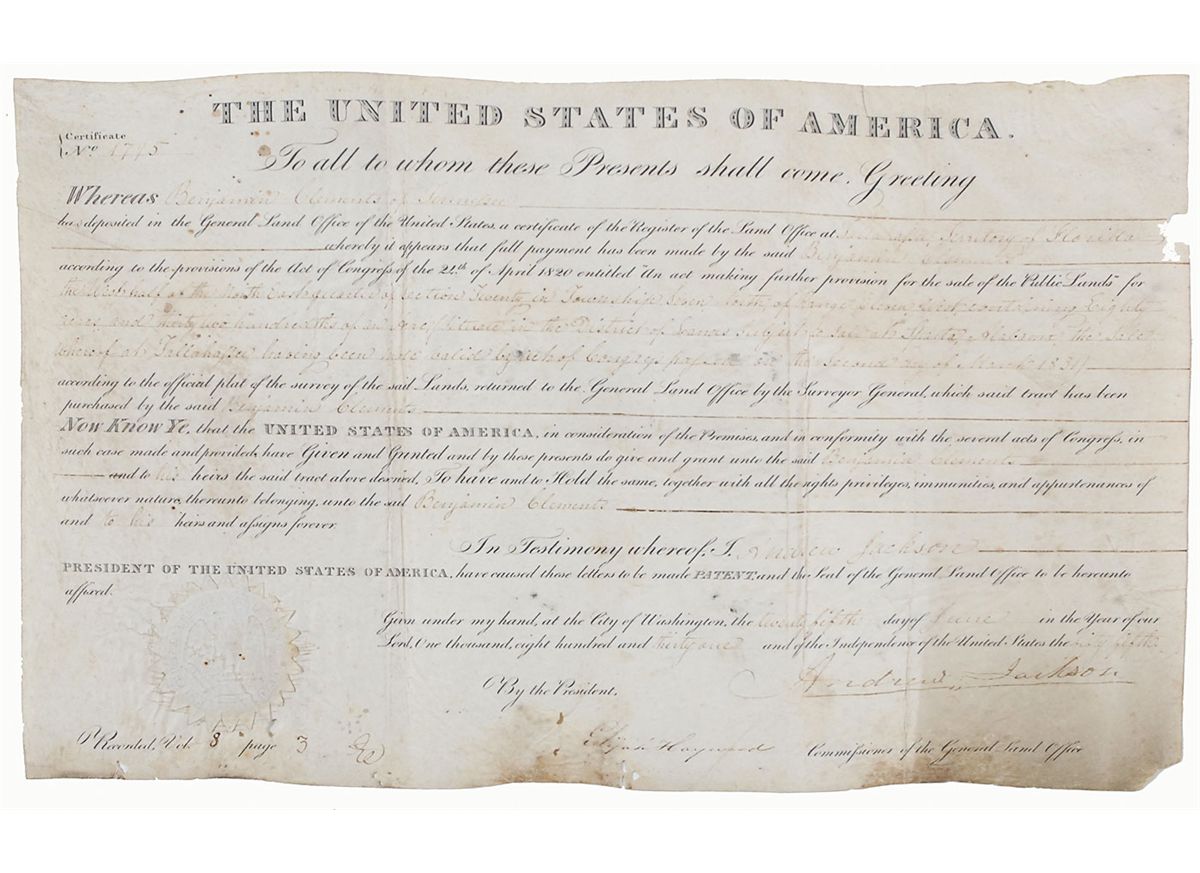 THE UNITED STATES OF AMERICA.
Certificate
No. 1745
To all to whom these Presents shall come, Greeting
Whereas Benjamin Clements of Tennessee
has deposited in the General Land Office of the United States, a certificate of the Register of the Land Office at Tallahassee, Territory of Florida
whereby it appears that full payment has been made by the said Benjamin Clements
according to the provisions of the Act of Congress of the 24th of April 1820 entitled An act making further provision for the sale of the Public Lands for
the West half of the North East quarter of section Twenty in Township Seven of range Eleven West containing Eighty
and thirty two hundredths of an acre, situate in the District of Lands Subject to Sale at Sparta, Alabama, the Sale
whereof at Tallahassee having been made valid by Act of Congress passed on the Second day of March 1831,
according to the official plat of the survey of the said Lands, returned to the General Land Office by the Surveyor General, which said tract has been
purchased by the said Benjamin Clements
Now Know Ye, that the UNITED STATES OF AMERICA, in consideration of the Premises, and in conformity with the several acts of Congress, in
such case made and provided, have Given and Granted and by these presents do give and grant unto the said Benjamin Clements
and to his heirs the said tract above described, To have and to Hold the same, together with all the rights privileges, immunities, and appurtenances of
whatsoever nature, thereunto belonging, unto the said Benjamin Clements
and to his heirs and assigns forever.
In Testimony whereof, I, Andrew Jackson
PRESIDENT OF THE UNITED STATES OF AMERICA, have caused these letters to be made PATENT, and the Seal of the General Land Office to be hereunto
affixed.
Given under my hand, at the City of Washington, the twenty fifth day of June in the Year of our
Lord, One thousand, eight hundred and thirty one and of the Independence of the United States the fifty fifth
Andrew Jackson
By the President,
Elijah Hayward Commissioner of the General Land Office
Recorded, Vol. 8 page 3